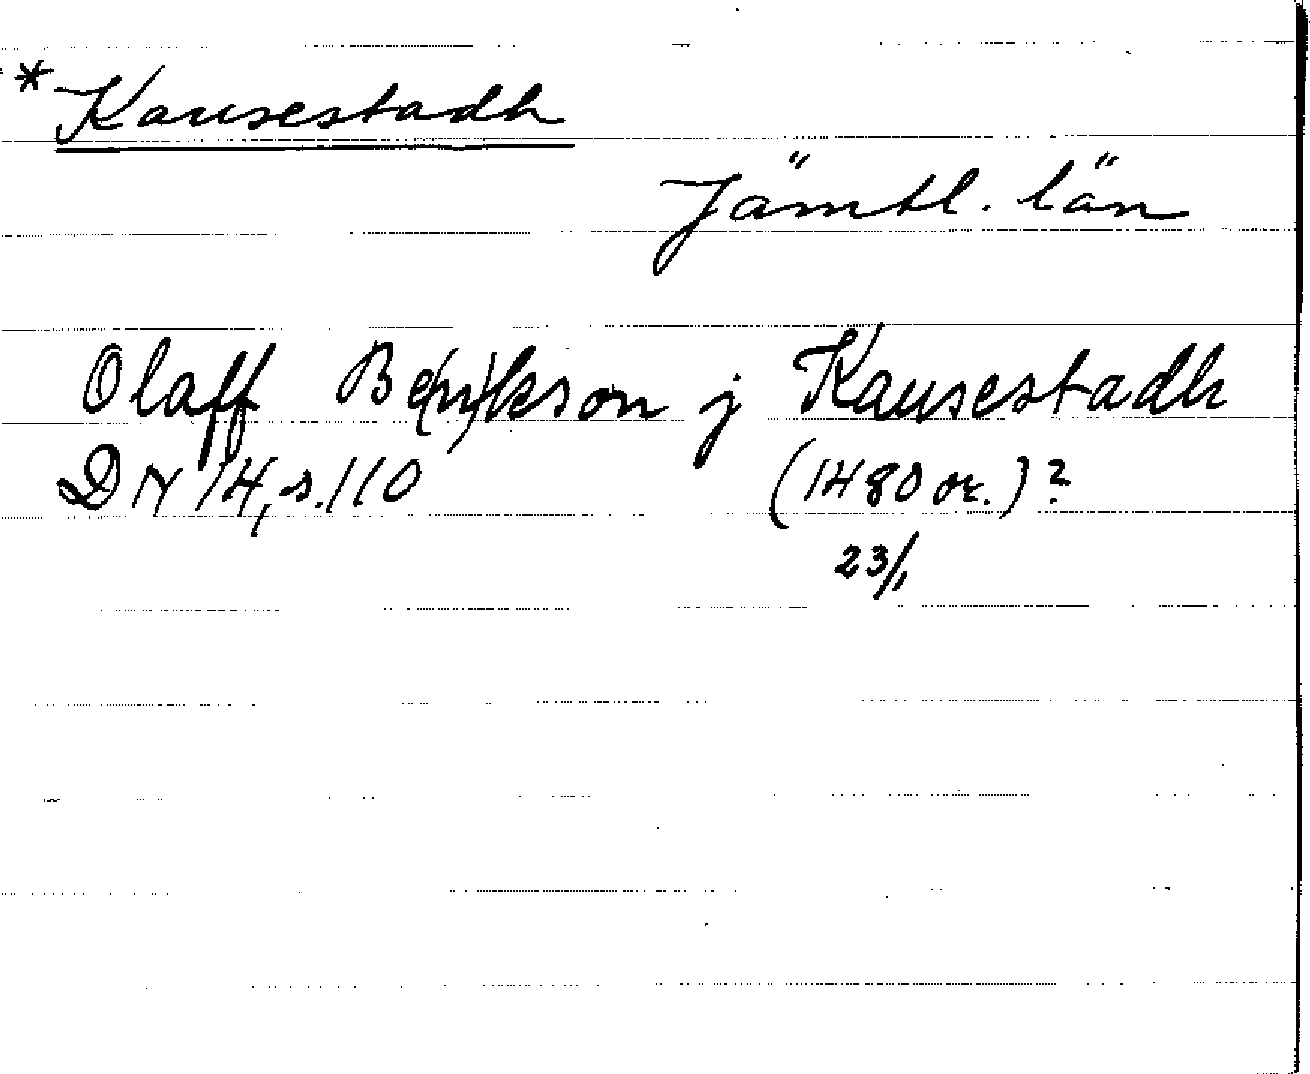 * Kausestadh
Jämtl. län
Olaff Be(n)kson j Kausestadh
DN 14, s. 110 (1480 or.)?
23/1